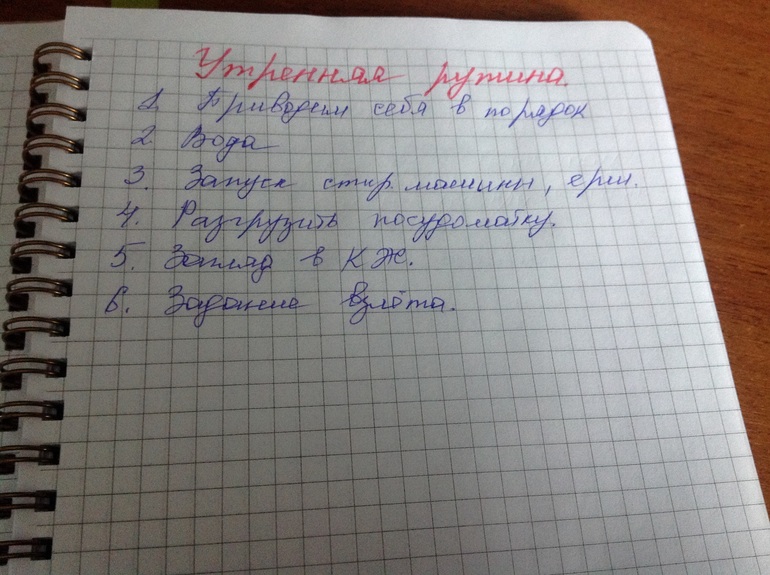 Утренняя рутина.
1. Приводим себя в порядок
2. Вода
3. Запуск стир. машины,
4. Разгрузить посудомойку.
5. Загляд в КЖ.
6. Задание взлёта.